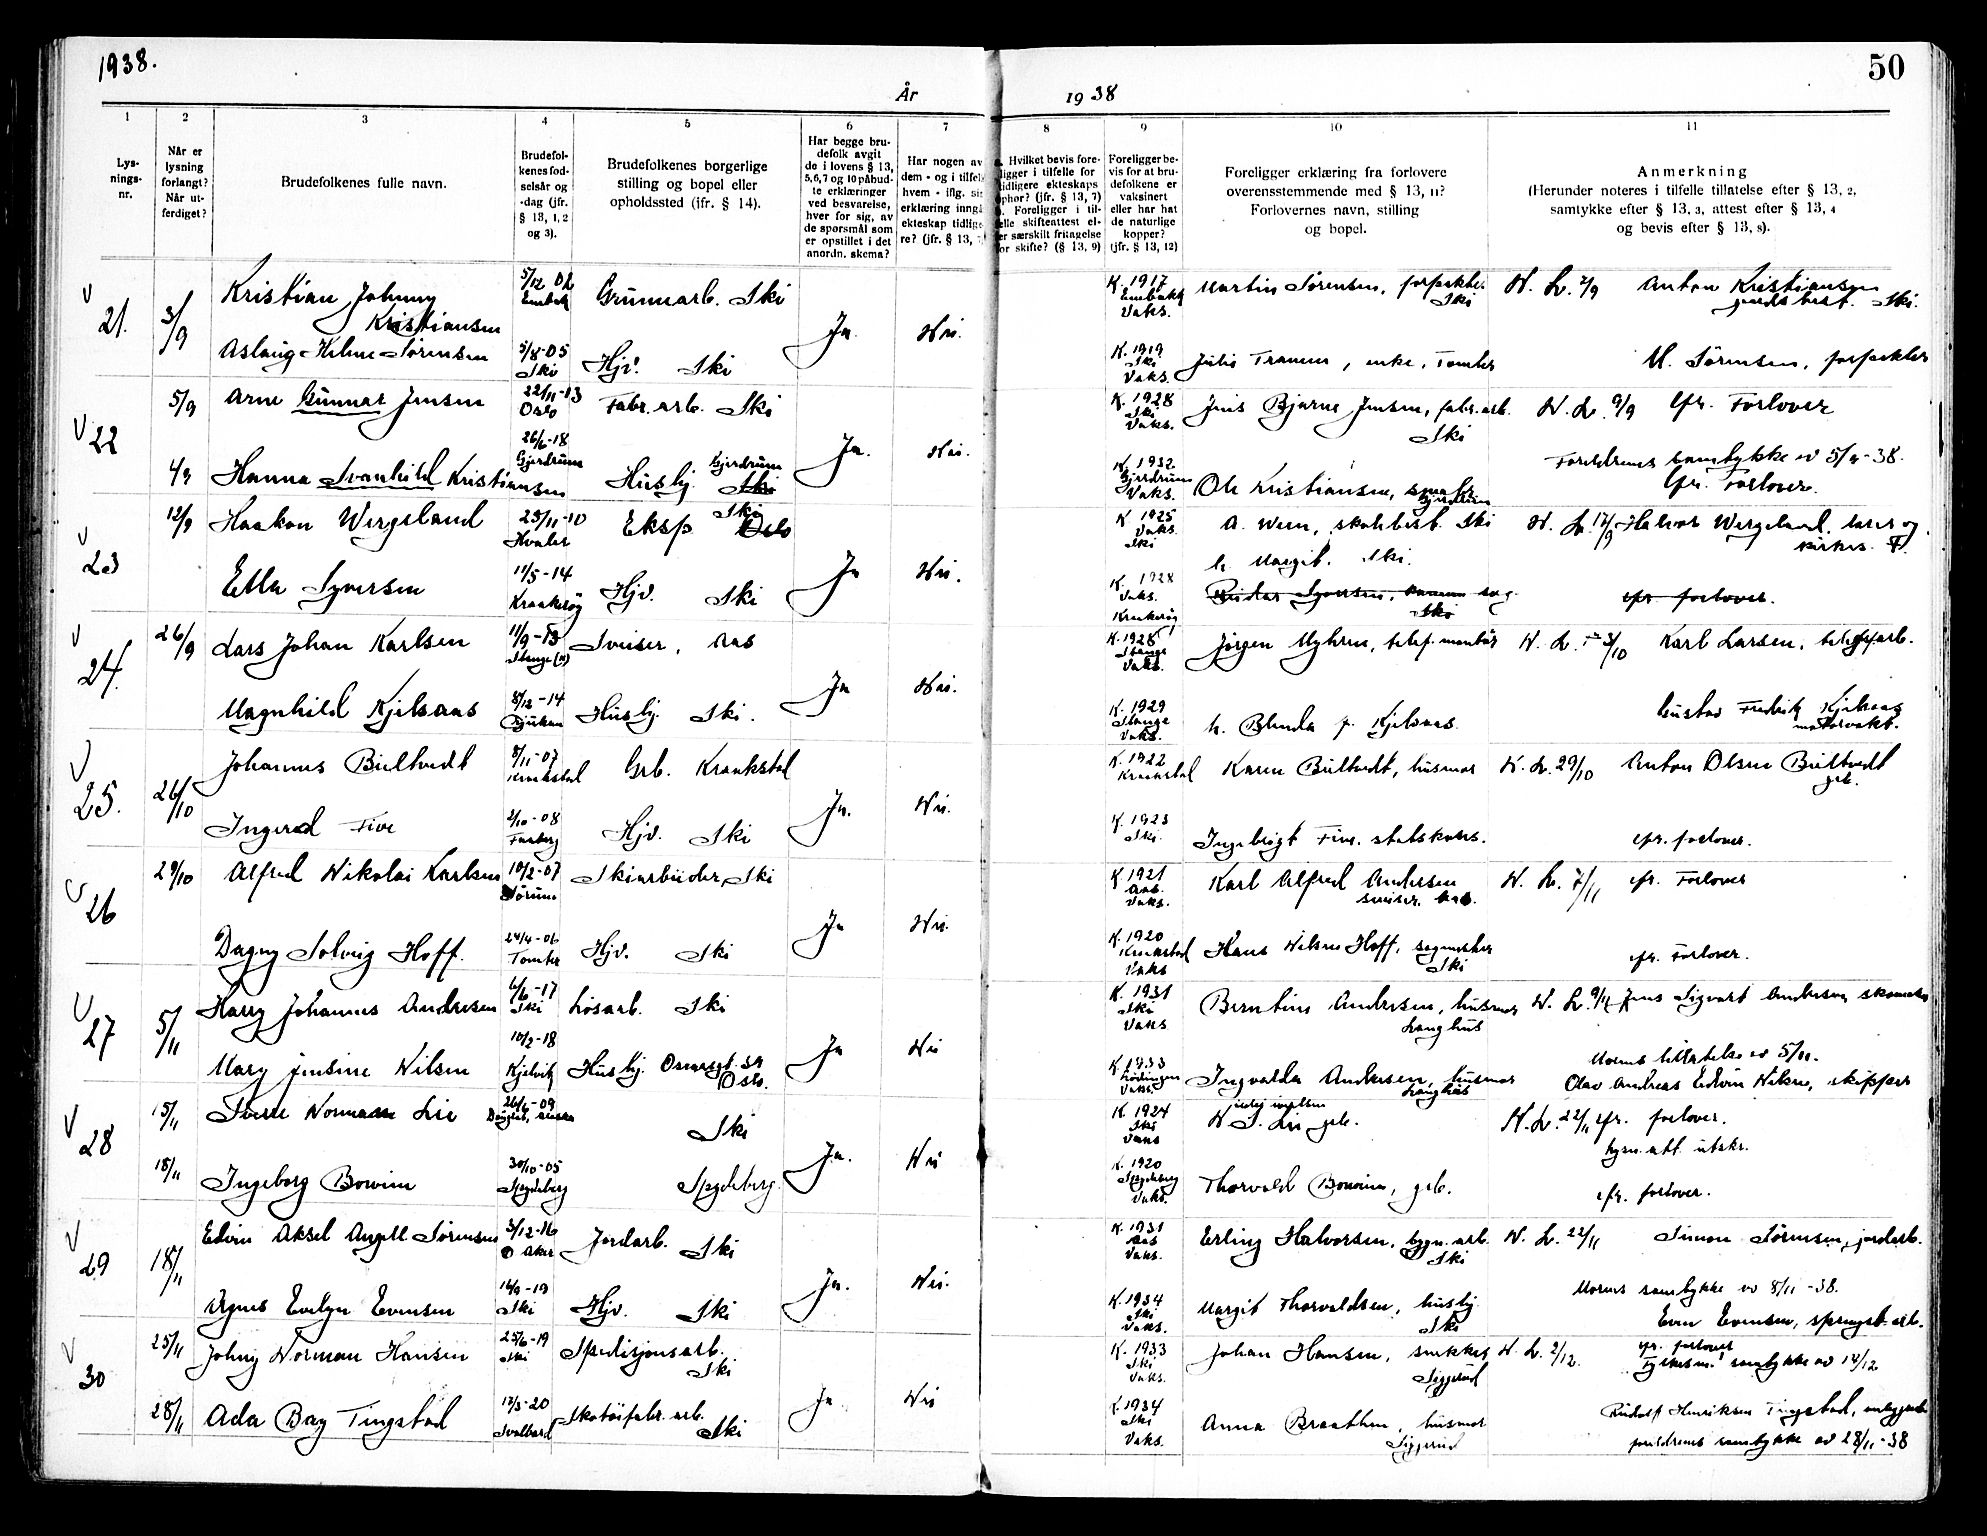 1938.
50
År 1938
1 2 3 4 5 6 7 8 9 10 11
Lys-
nings-
nr.
Når er
lysning
forlangt?
Når ut-
ferdiget?
Brudefolkenes fulle navn.
Brudefol-
kenes fød-
selsår og
-dag (jfr.
§ 13, 1, 2
og 3).
Brudefolkenes borgerlige
stilling og bopel eller
opholdssted (jfr. § 14).
Har begge bru-
defolk avgit
de i lovens § 13,
5,6,7 og 10 påbud-
te erklæringer
ved besvarelse,
hver for sig, av
de spørsmål som
er opstillet i det
anordn. skema?
Har nogen av
dem - og i tilfelle
hvem - iflg. sin
erklæring inngå
ekteskap tidlige-
re? (jfr. § 13, 7
Hvilket bevis fore-
ligger i tilfelle for
tidligere ekteskaps
ophør? (jfr. § 13, 7)
Foreligger i til-
elle skifteattest el-
er særskilt fritagelse
or skifte? (§ 13, 9)
Foreligger be-
vis for at bru-
defolkene er
vaksinert
eller har hat
de naturlige
kopper?
(jfr. § 13, 12)
Foreligger erklæring fra forlovere
overensstemmende med § 13, 11?
Forlovernes navn, stilling
og bopel.
Anmerkning
(Herunder noteres i tilfelle tillatelse efter § 13, 2,
samtykke efter § 13, 3, attest efter § 13, 4
og bevis efter § 13, 8).
21. 3/9 Kristian Johnny Kristiansen 5/12 02 Grunnarb. Ski Ja Nei. K. 1917 Vaks. Martin Sørensen, forpakter Ski N. L. 7/9 Anton Kristiansen gårdsbest. Ski.
Aslaug Helene Sørensen 5/8-05 Ski Hjv. Ski K. 1919 Ski Vaks. enke, Tomter M. Sørensen, forpakter
22 5/9 Arne Gunnar Jensen 22/11-13 Oslo Fabr. arb. Ski Ja. Nei. K. 1928 Ski Vaks. Jens Bjarne Jensen, fabr. arb. Ski N. L. 9/9 efr. Forlover
Hanna Svanhild Kristiansen 26/6-18 Gjerdrum Husbj. Gjerdrum Ski K. 1932 Gjerdrum Vaks. Ole Kristiansen, Gjerdrum Foreldrenes samtykke -38.
efr. Forlover.
23 12/9 Haakon Wergeland 25/11-10 Hvaler Eksp. Ski Oslo Ja Nei. K. 1925 Vaks. Ski A. Ween, skobest. Ski N. L. 17/9 Halvor Wergeland, lærer og
h. Margit. Ski.
Ella Syversen 11/5-14 Krokerøy Hjv. Ski K. 1928 Vaks. Krokerøy Reidar Syversen, Ski efr forlover.
24. 26/9 Lars Johan Karlsen 11/9-13 Stange Sveiser, Aas Ja Nei. K. 1928 Stange Vaks. Jørgen Myhren, telef. montør N. L. 3/10 Karl Larsen, telegrafarb.
Magnhild Kjelsaas 8/12-14 Rjukan Husbj. Ski. K. 1929 Stange Vaks. h. Blenda f. Kjelsaas. Gustav Fredrik Kjelsaas
motorvakt.
25. 26/10 Johannes Bultvedt 8/11-07 Kraakstad Grb. Kraakstad Ja. Nei. K. 1922 Kraakstad Karen Bultvedt, husmor N. L. 29/10 Anton Olsen Bultvedt
grb.
Ingerd Five 2/10-08 Faaberg Hjv. Ski K. 1923 Ski. Ingebrigt Five. statskons. efr. forlover.
26 29/10 Alfred Nikolai Karlsen 10/2-07 Sørum Skiarbeider, Ski Ja Nei. K. 1921 Aas. Vaks. Karl Alfred Andersen
sveiser. Aas. N. L. 7/11 efr. Forlover
Dagny Solveig Hoff. 24/4-06 Tomter Hjv. Ski K. 1920 Kraakstad Vaks Hans Nilsen Hoff, Ski efr. Forlover.
27 5/11 Harry Johannes Andresen 6/6-17 Ski Løsarb. Ski Ja Nei K. 1931 Ski Vaks Berntine Andresen, husmor Langhus N. L. 9/11 Jens Sigvart Andresen, skomaker
Mary Jensine Nilsen 10/2-18 Kjelvik Husbj. Oscarsgt. 39 Oslo. K. 1933 Lødingen Vaks. Ingvalda Andresen, husmor Langhus Morens tillatelse av 5/11.
Olav Andreas Edvin Nilsen, skipper
28 15/11 Sverre Norman Lie 26/1-09 Ski Ja. Nei K. 1924 Ski Vaks N. S. Lie grb. N. L. 22/11 efr. forlover.
18/11 Ingeborg Bowim 30/10-05 Spydeberg Spydeberg. K. 1920 Spydeberg Vaks. Thorvald Bowim, grb. efr. forlover.
29 18/11 Edvin Aksel Angell Sørensen 3/12-16 Ø Aker Jordarb. Ski Ja. Nei. K. 1931 Aas Vaks. Erling Halvorsen, bygn. arb. Ski N. L. 22/11 Simon Sørensen, jordarb.
Agnes Evelyn Evensen 16/9-19 Ski Hjv. Ski K. 1934 Ski Vaks. Margit Thorvaldsen, husbj. Ski Morens samtykke av 8/11-38.
Even Evensen, sprengst. arb.
30 25/11 Johny Norman Hansen 25/6-19 Ski Spedisjonsarb. Ski Ja Nei K. 1933 Ski Vaks. Johan Hansen, snekker Siggerud N. L. 2/12. efr. forlover
Fylkesm. samtykke av 14/12
28/11 Ada Bay Tingstad 17/3-20 Svalbard Skotøifabr. arb. Ski K. 1934 Ski Vaks. Anna Braathen, husmor Siggerud Rudolf Henriksen Tingstad, anleggsarb
foreldrenes samtykke av 28/11-38